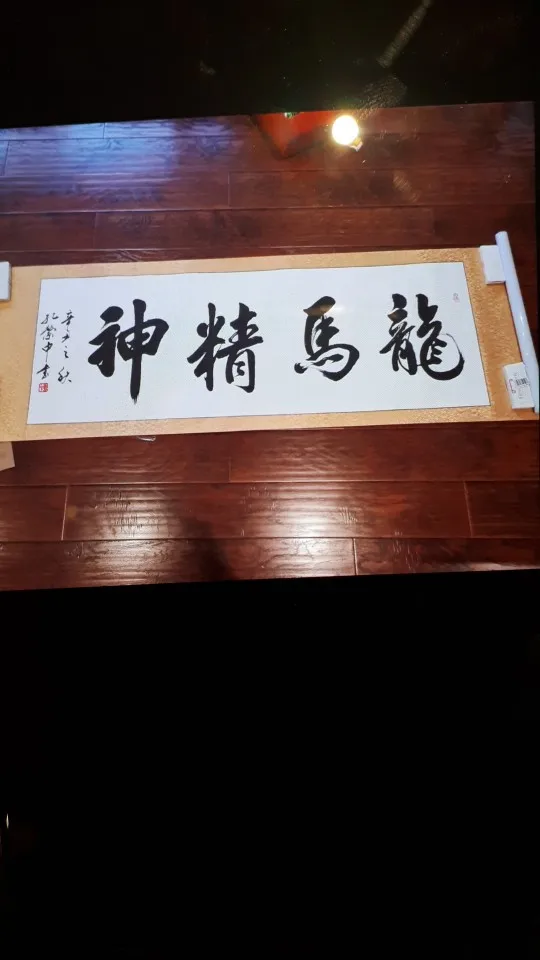 龍馬精神
辛丑之秋